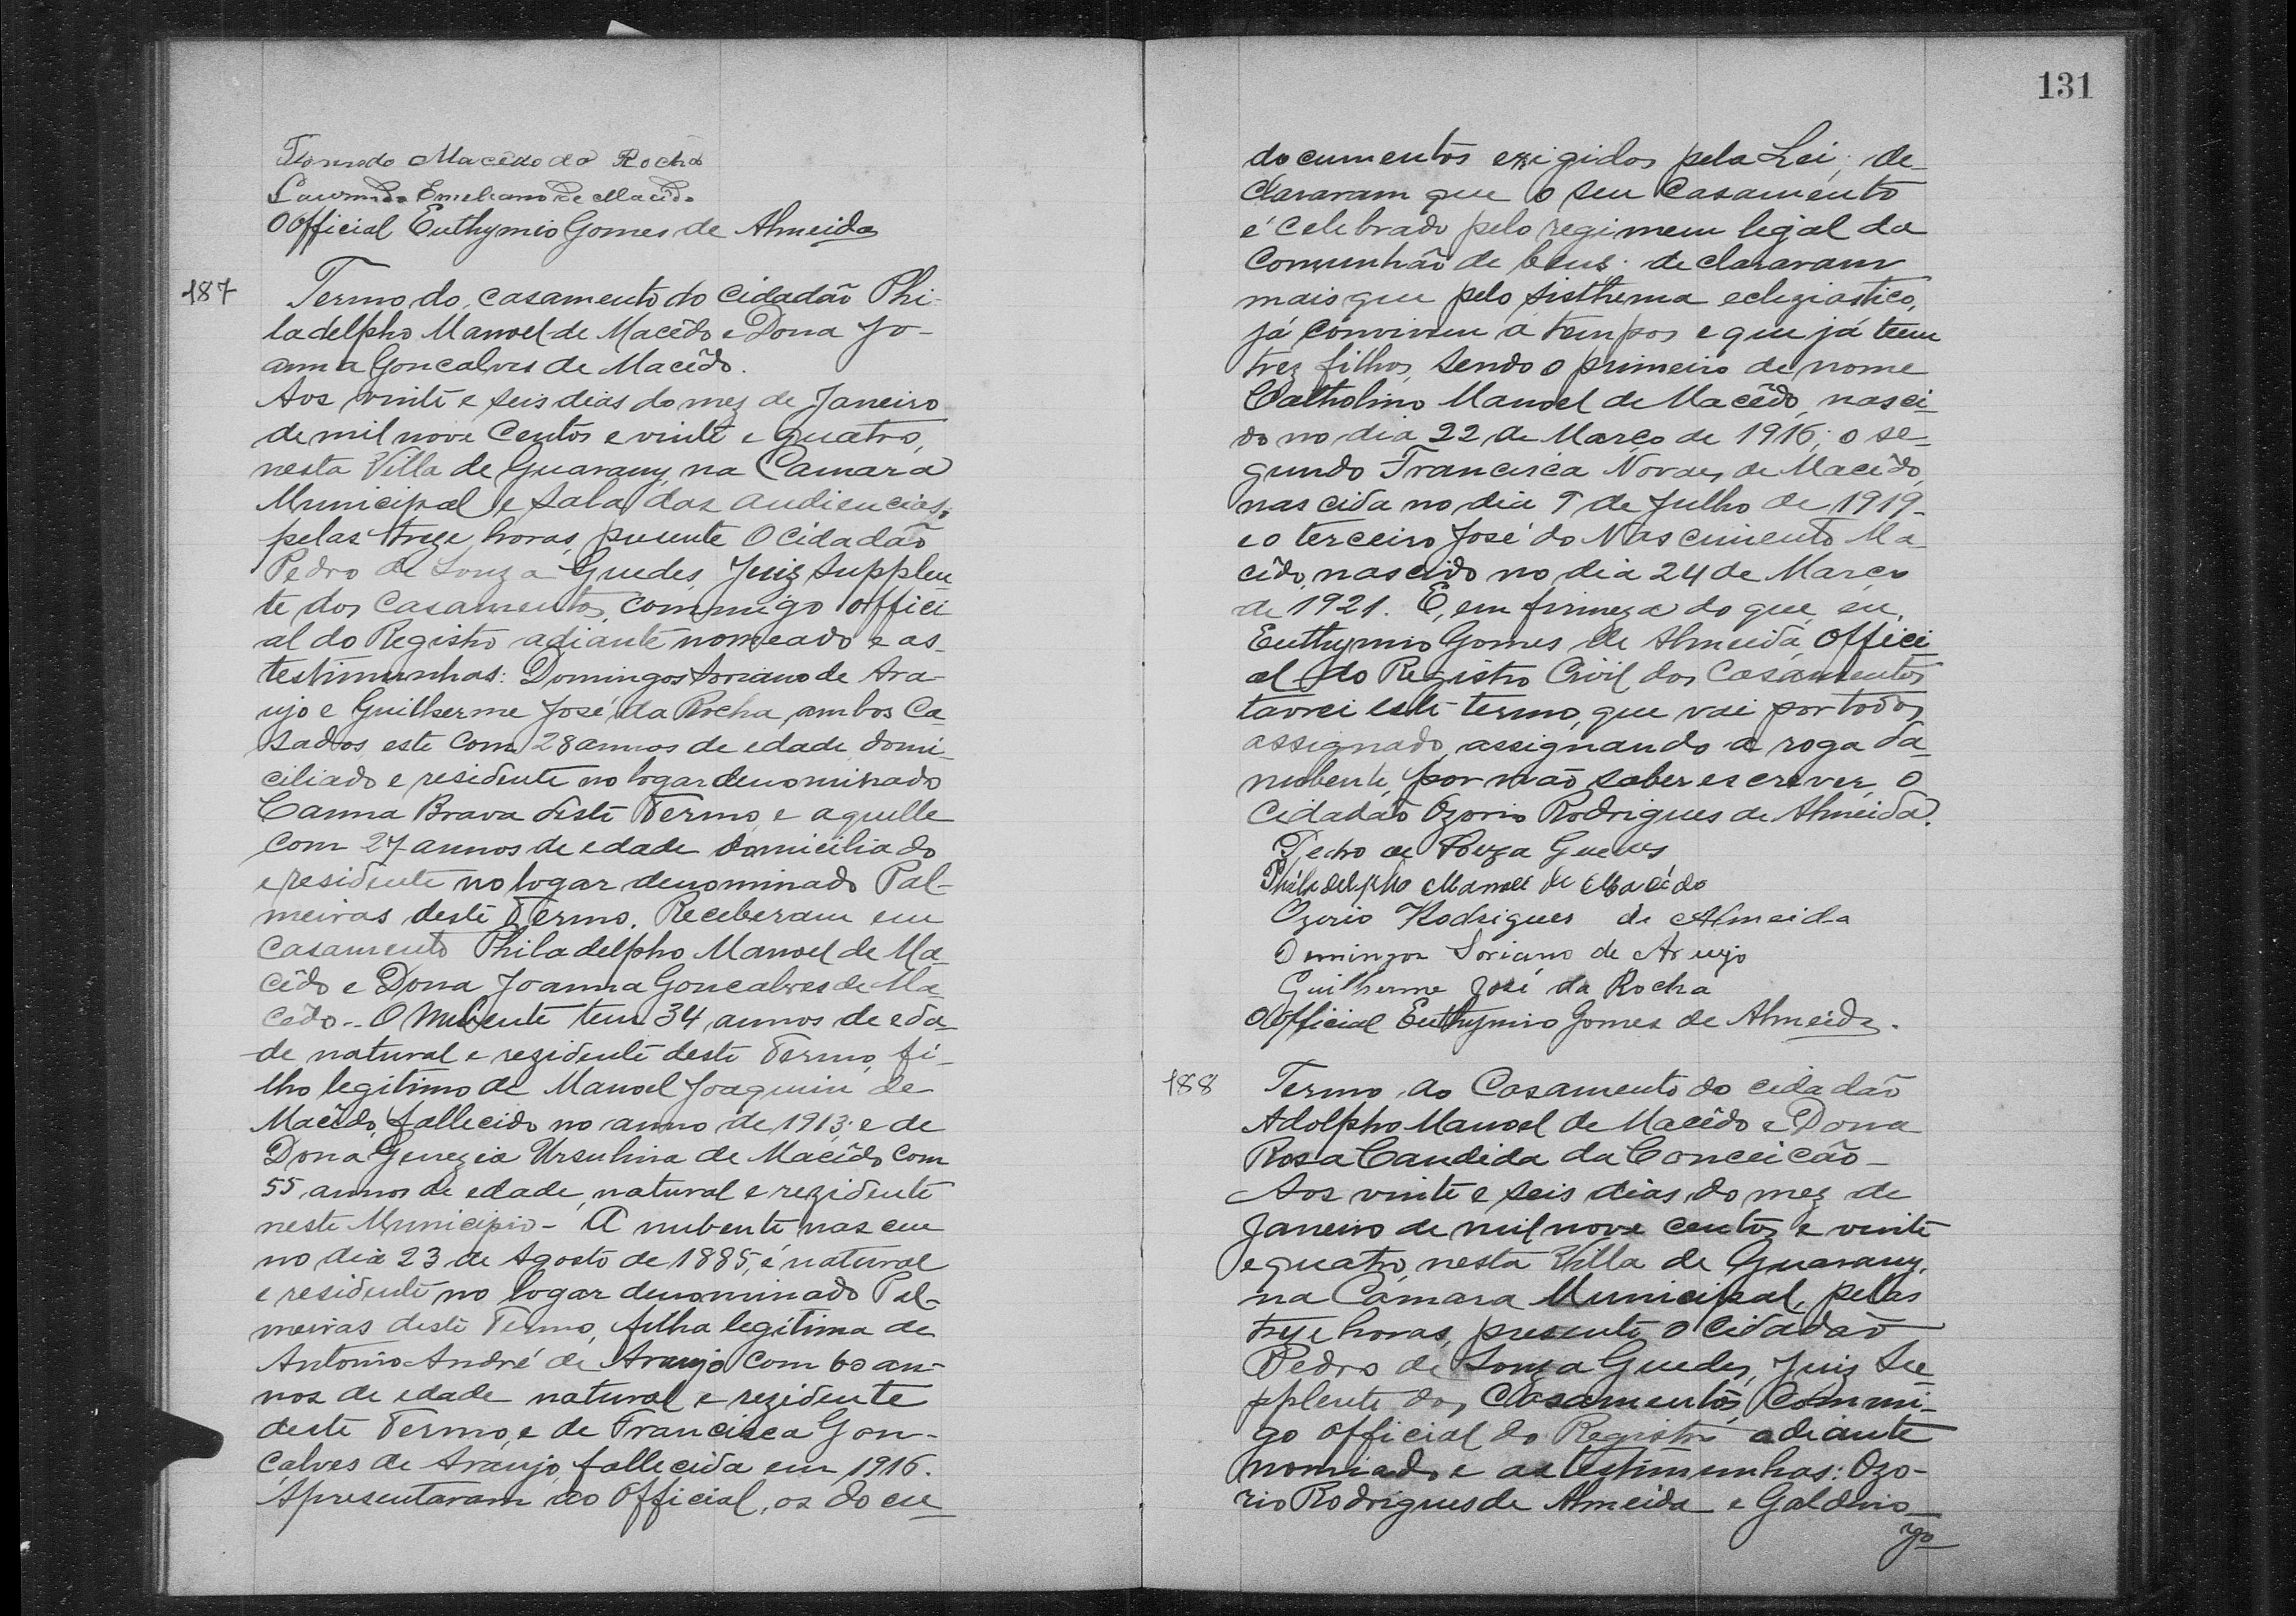 Macêdo da Rocha
Emeliano de Macêdo
O Official Euthymio Gomes de Almeida
187
Termo do casamento do cidadão Phi-
ladelpho Manoel de Macêdo e Dona Jo-
anna Goncalves de Macêdo.
Aos vinte e seis dias do mez de Janeiro
de mil nove centos e vinte e quatro,
nesta Villa de Guarany, na Camara
Municipal e sala das audiencias,
pelas treze horas, presente o cidadão
Pedro de Souza Guedes, Juiz Supplen
te dos casamentos, commigo offici
al do Registro adiante nomeado e as
testimunhas: Domingos Soriano de Ara-
ujo e Guilherme José da Rocha, ambos ca-
sados, este com 28 annos de edade domi-
ciliado e residente no logar denominado
Canna Brava deste Termo, e aquelle
com 27 annos de edade domiciliado
e residente no logar denominado Pal-
meiras deste Termo. Receberam em
casamento Philadelpho Manoel de Ma-
cêdo e Dona Joanna Goncalves de Ma-
cedo.. O nubente tem 34 annos de eda-
de natural e rezidente deste Termo, fi-
lho legitimo de Manoel Joaquim de
Macêdo, fallecido no anno de 1913; e de
Dona Genezia Ursulina de Macêdo com
55 annos de edade, natural e rezidente
neste Municipio - A nubente nasceu
no dia 23 de Agosto de 1885, é natural
e residente no logar denominado Pal-
meiras deste Termo, filha legitima de
Antonio André de Araujo com 60 an-
nos de edade natural e rezidente
deste Termo, e de Francisca Gon-
çalves de Araujo, fallecida em 1916.
Apresentaram ao Official, os docu-
131
documentos exigidos pela Lei; de-
clararam que o seu casamento
é celebrado pelo regimem legal da
Comunhão de bens. declararam
mais que pelo sisthema ecleziastico,
já convivem a tempos e que já tem
trez filhos, sendo o primeiro de nome
Catholino Manoel de Macêdo, nasci-
do no dia 22 de Março de 1916; o se-
gundo Francisca Novaes de Macêdo,
nascida no dia 9 de Julho de 1919-
e o terceiro José do Nascimento Ma-
cêdo, nascido no dia 24 de Março
de 1921. E, em firmeza do que, eu,
Euthymio Gomes de Almeida, offici
al do Registro Civil dos Casamentos
lavrei este termo, que vai por todos
assignado, assignando a roga da
nubente, por não saber escrever, o
cidadão Ozorio Rodrigues de Almeida.
Pedro de Souza Guedes
Philadelpho Manoel de Macêdo
Ozorio Rodrigues de Almeida
Domingos Soriano de Araujo
Guilherme José da Rocha
O Official Euthymio Gomes de Almeida.
188
Termo do Casamento do cidadão
Adolpho Manoel de Macêdo e Dona
Rosa Candida da Conceicão -
Aos vinte e seis dias do mez de
Janeiro de mil nove centos e vinte
e quatro, nesta Villa de Guarany,
na Camara Municipal, pelas
treze horas, presente o cidadão
Pedro de Souza Guedes, Juiz Su-
pplente dos Casamentos, commi-
go official do Registro adiante
nomiado e as testimunhas: Ozo-
rio Rodrigues de Almeida e Galdino